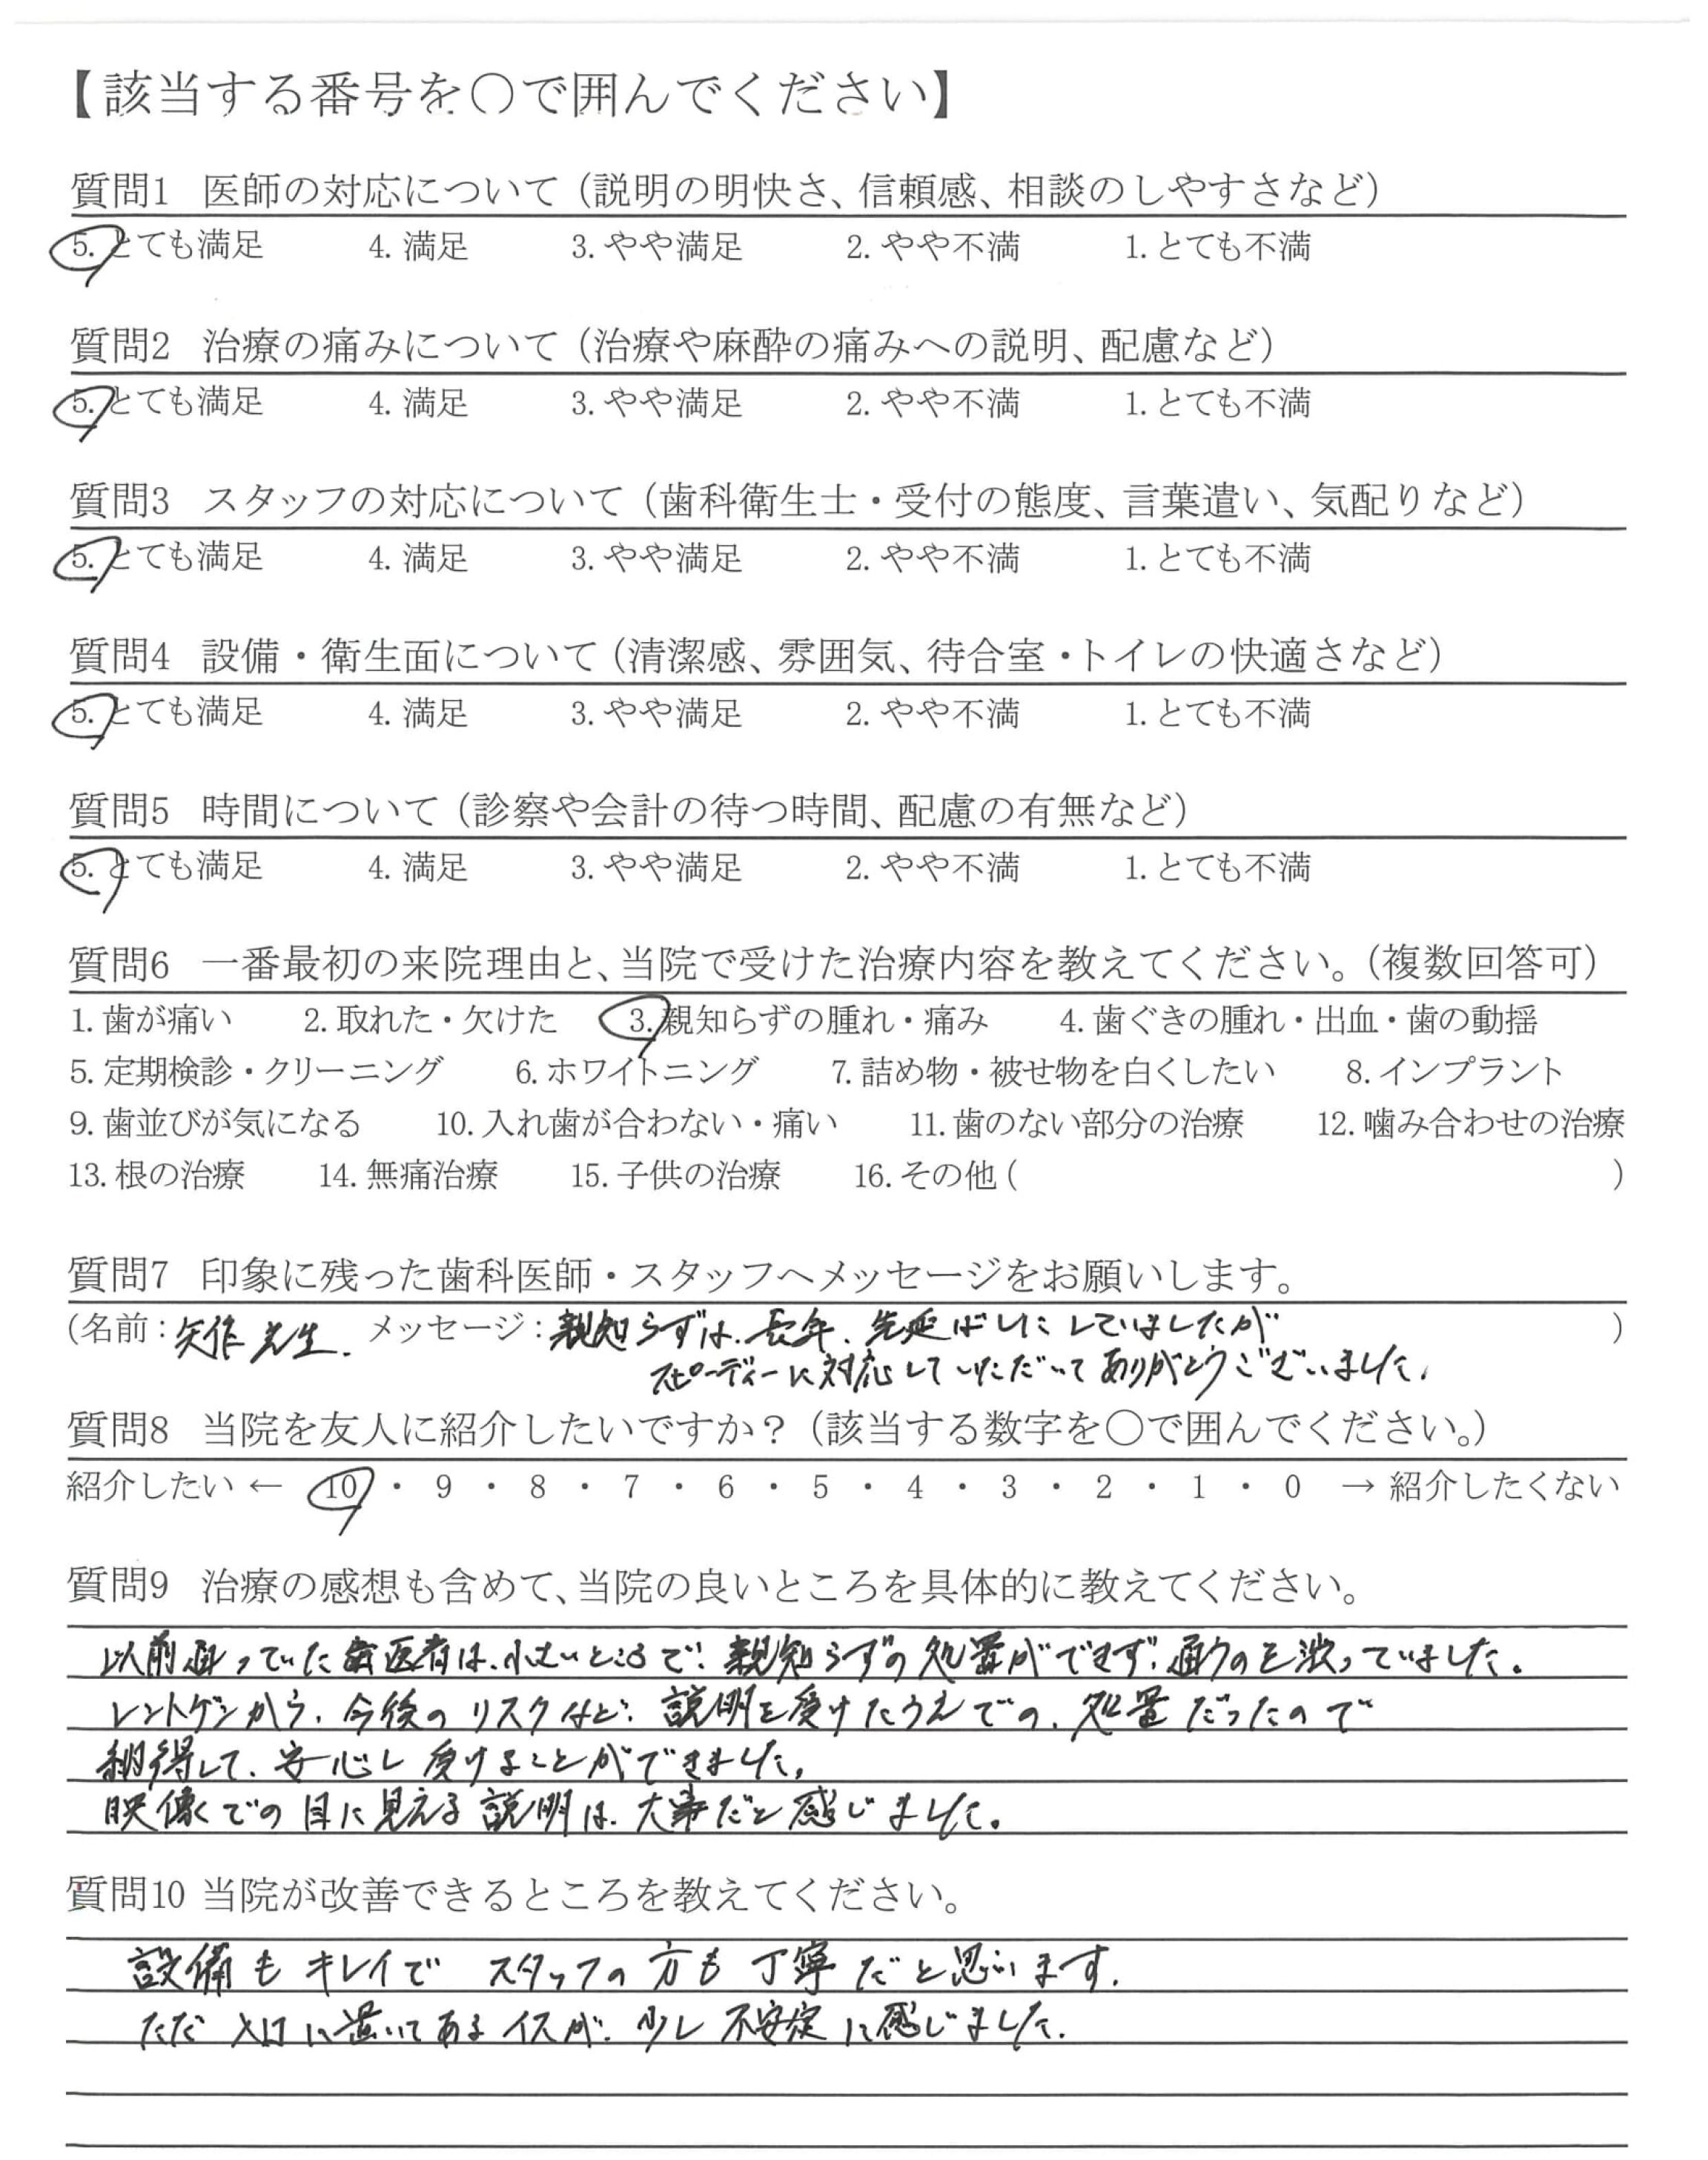 【該当する番号を○で囲んでください】
質問1 医師の対応について（説明の明快さ、信頼感、相談のしやすさなど）
5. とても満足 4. 満足 3. やや満足 2. やや不満 1. とても不満
質問2 治療の痛みについて（治療や麻酔の痛みへの説明、配慮など）
5. とても満足 4. 満足 3. やや満足 2. やや不満 1. とても不満
質問3 スタッフの対応について（歯科衛生士・受付の態度、言葉遣い、気配りなど）
5. とても満足 4. 満足 3. やや満足 2. やや不満 1. とても不満
質問4 設備・衛生面について（清潔感、雰囲気、待合室・トイレの快適さなど）
5. とても満足 4. 満足 3. やや満足 2. やや不満 1. とても不満
質問5 時間について（診察や会計の待つ時間、配慮の有無など）
5. とても満足 4. 満足 3. やや満足 2. やや不満 1. とても不満
質問6 一番最初の来院理由と、当院で受けた治療内容を教えてください。（複数回答可）
1. 歯が痛い 2. 取れた・欠けた 3. 親知らずの腫れ・痛み 4. 歯ぐきの腫れ・出血・歯の動揺
5. 定期検診・クリーニング 6. ホワイトニング 7. 詰め物・被せ物を白くしたい 8. インプラント
9. 歯並びが気になる 10. 入れ歯が合わない・痛い 11. 歯のない部分の治療 12. 噛み合わせの治療
13. 根の治療 14. 無痛治療 15. 子供の治療 16. その他 ( )
質問7 印象に残った歯科医師・スタッフへメッセージをお願いします。
(名前：矢作先生. メッセージ：親知らずは、長年、先延ばしにしていましたが )
スピーディーに対応していただいてありがとうございました。
質問8 当院を友人に紹介したいですか？（該当する数字を○で囲んでください。）
紹介したい ← 10 ・ 9 ・ 8 ・ 7 ・ 6 ・ 5 ・ 4 ・ 3 ・ 2 ・ 1 ・ 0 → 紹介したくない
質問9 治療の感想も含めて、当院の良いところを具体的に教えてください。
以前通っていた歯医者は、小さいところで、親知らずの処置ができず、通うのを渋っていました。
レントゲンから、今後のリスクなど、説明を受けたうえでの、処置だったので
納得して、安心し受けることができました。
映像での目に見える説明は、大事だと感じました。
質問10 当院が改善できるところを教えてください。
設備もキレイで スタッフの方も丁寧だと思います。
ただ 入口に置いてあるイスが、少し不安定に感じました。